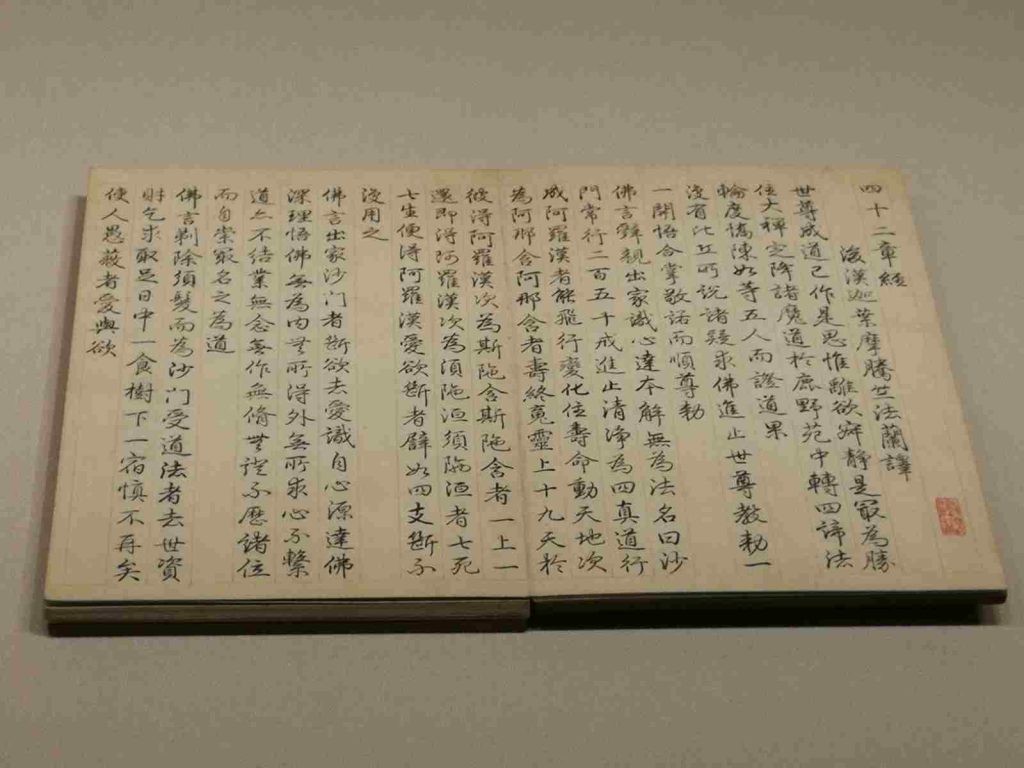 四十二章經
後漢迦葉摩騰竺法蘭譯
世尊成道已作是思惟離欲寂静是㝡為勝
住大禪定降諸魔道於鹿野苑中轉四諦法
輪度憍陳如等五人而證道果
復有比丘所說諸疑求佛進止世尊教勅一
一開悟合掌敬諾而順尊勅
佛言辭親出家識心達本解無為法名曰沙
門常行二百五十戒進止清淨為四真道行
成阿羅漢者能飛行變化位壽命動天地次
為阿那含阿那含者壽終竟靈上十九天於
彼得阿羅漢次為斯陁含斯陁含者一上一
還即得阿羅漢次為湏陁洹須陁洹者七死
七生便得阿羅漢愛欲斷者辟如四支斷不
復用之
佛言出家沙门者斷欲去愛識自心源達佛
深理悟佛無為内無所得外無所求心不繫
道亦不結業無念無作無脩無證不歷諸位
而自崇㝡名之為道
佛言剃除須髮而為沙门受道法者去世資
財乞求取足日中一食樹下一宿慎不再矣
使人愚蔽者愛與欲